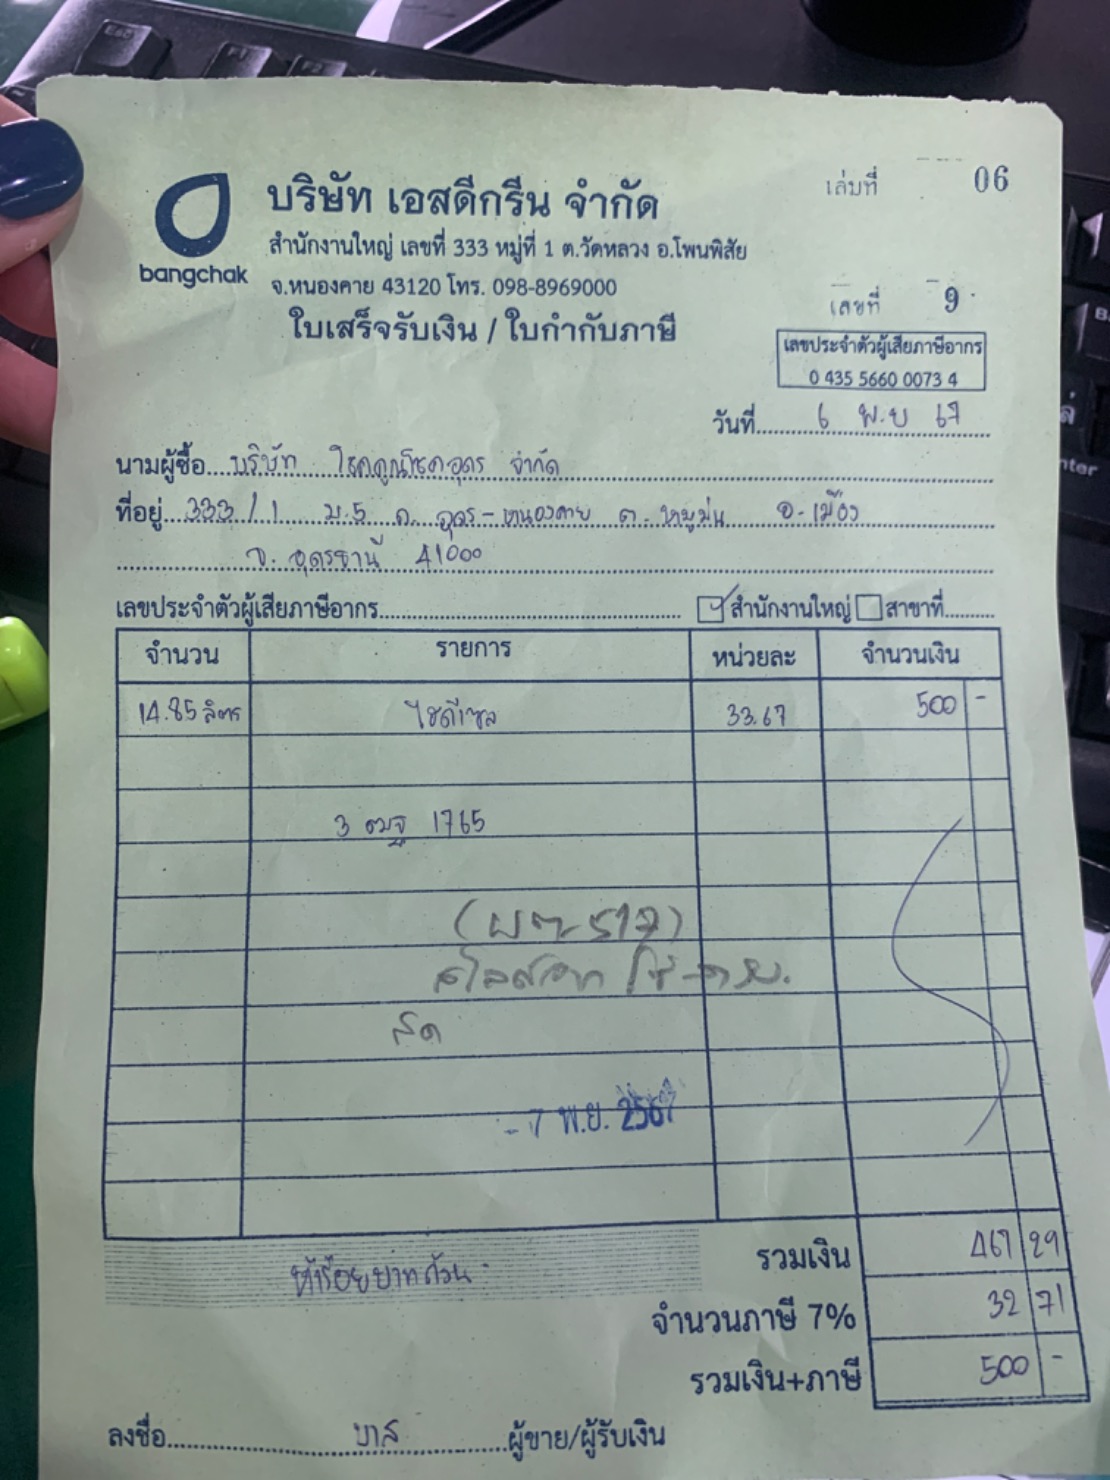 เล่มที่ 06
บริษัท เอสดีกรีน จำกัด
bangchak
สำนักงานใหญ่ เลขที่ 333 หมู่ที่ 1 ต.วัดหลวง อ.โพนพิสัย
จ.หนองคาย 43120 โทร. 098-8969000
เลขที่ 9
ใบเสร็จรับเงิน / ใบกำกับภาษี
เลขประจำตัวผู้เสียภาษีอากร
0 435 5660 0073 4
วันที่ 6 พ.ย 67
นามผู้ซื้อ บริษัท โชคคูณโชคอุดร จำกัด
ที่อยู่ 333/1 ม.5 ถ. อุดร-หนองคาย ต. หมูม่น อ.เมือง
จ. อุดรธานี 41000
เลขประจำตัวผู้เสียภาษีอากร สำนักงานใหญ่ สาขาที่
จำนวน รายการ หน่วยละ จำนวนเงิน
14.85 ลิตร ไฮดีเซล 33.67 500 -
3 ฒฐ 1765
สด
7 พ.ย. 2567
รวมเงิน 467 29
ห้าร้อยบาทถ้วน
จำนวนภาษี 7% 32 71
รวมเงิน+ภาษี 500 -
ลงชื่อ บาส ผู้ขาย/ผู้รับเงิน